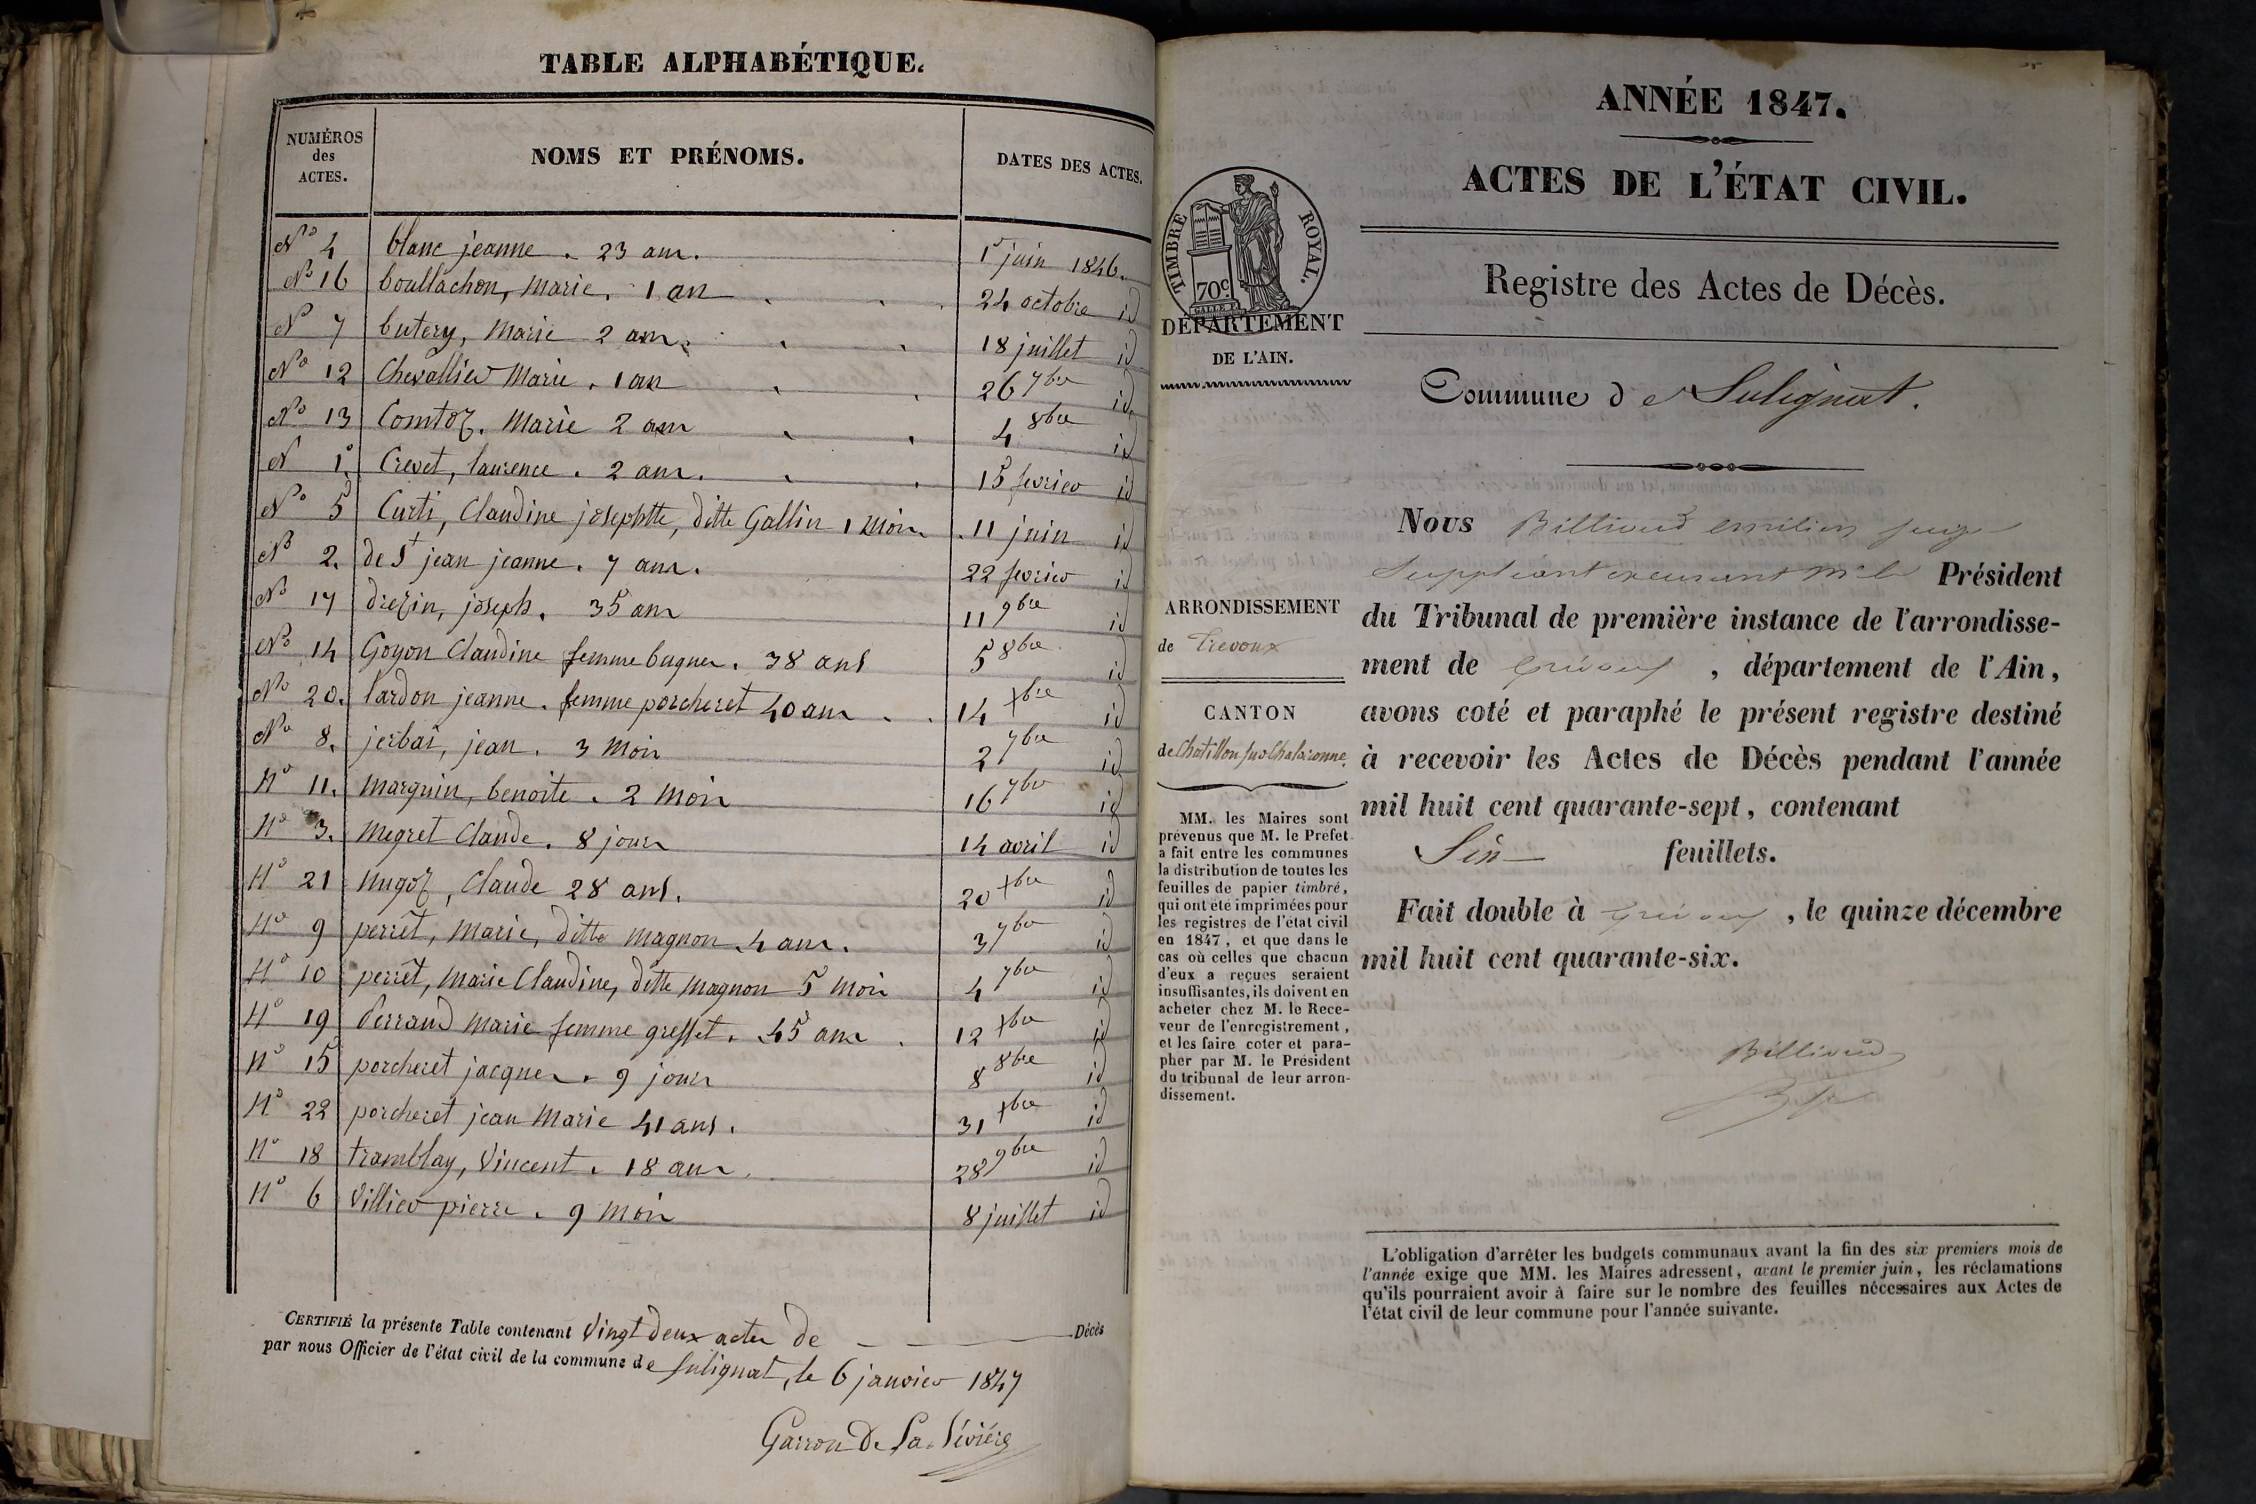 TABLE ALPHABÉTIQUE.
NUMÉROS
des
ACTES.
NOMS ET PRÉNOMS.
DATES DES ACTES.
No 4 blanc jeanne. 23 ans. 1er juin 1846.
No 16 boullachon, Marie. 1 an 24 octobre id
No 7 butery, Marie 2 ans. 18 juillet id
No 12 Chevallier Marie. 1 an 26 7bre id
No 13 Comtoz. Marie 2 ans 4 8bre id
No 1. Crevet, laurence. 2 ans. 15 fevrier id
No 5 Curti, Claudine josephtte, ditte Gallin 1 mois 11 juin id
No 2. de St jean jeanne. 7 ans. 22 fevrier id
No 17 drezin, joseph. 35 ans 11 9bre id
No 14 Goyon Claudine femme buguer. 38 ans 5 8bre id
No 20. lardon jeanne. femme porcheret 40 ans 14 xbre id
No 8. jerbai, jean. 3 mois 2 7bre id
No 11. marguin, benoite. 2 mois 16 7bre id
No 3. Megret Claude. 8 jours 14 avril id
No 21 Nugoz, Claude 28 ans. 20 xbre id
No 9 perret, Marie, ditte magnon 4 ans. 3 7bre id
No 10 perret, Marie Claudine, ditte magnon 5 mois 4 7bre id
No 19 Perraud Marie femme greffet. 45 ans 12 xbre id
No 15 porcheret jacques. 9 jours 8 8bre id
No 22 porcheret jean Marie 41 ans. 31 xbre id
No 18 tramblay, Vincent. 18 ans. 28 9bre id
No 6 Villier pierre. 9 mois 8 juillet id
CERTIFIÉ la présente Table contenant Vingt deux actes de Décès
par nous Officier de l'état civil de la commune de Sulignat, le 6 janvier 1847
Garron De La Sévière
ANNÉE 1847.
ACTES DE L'ÉTAT CIVIL.
Registre des Actes de Décès.
Commune de Sulignat.
TIMBRE ROYAL.
70c
DÉPARTEMENT
DE L'AIN.
ARRONDISSEMENT
de Trevoux
CANTON
de Chatillon sur Chalaronne.
MM. les Maires sont
prévenus que M. le Prefet
a fait entre les communes
la distribution de toutes les
feuilles de papier timbré,
qui ont été imprimées pour
les registres de l'état civil
en 1847, et que dans le
cas où celles que chacun
d'eux a reçues seraient
insuffisantes, ils doivent en
acheter chez M. le Rece-
veur de l'enregistrement,
et les faire coter et para-
pher par M. le Président
du tribunal de leur arron-
dissement.
Nous Billioud emilien juge
Suppléant Président
du Tribunal de première instance de l'arrondisse-
ment de Trévoux, département de l'Ain,
avons coté et paraphé le présent registre destiné
à recevoir les Actes de Décès pendant l'année
mil huit cent quarante-sept, contenant
Six feuillets.
Fait double à Trévoux, le quinze décembre
mil huit cent quarante-six.
Billioud
L'obligation d'arrêter les budgets communaux avant la fin des six premiers mois de
l'année exige que MM. les Maires adressent, avant le premier juin, les réclamations
qu'ils pourraient avoir à faire sur le nombre des feuilles nécessaires aux Actes de
l'état civil de leur commune pour l'année suivante.